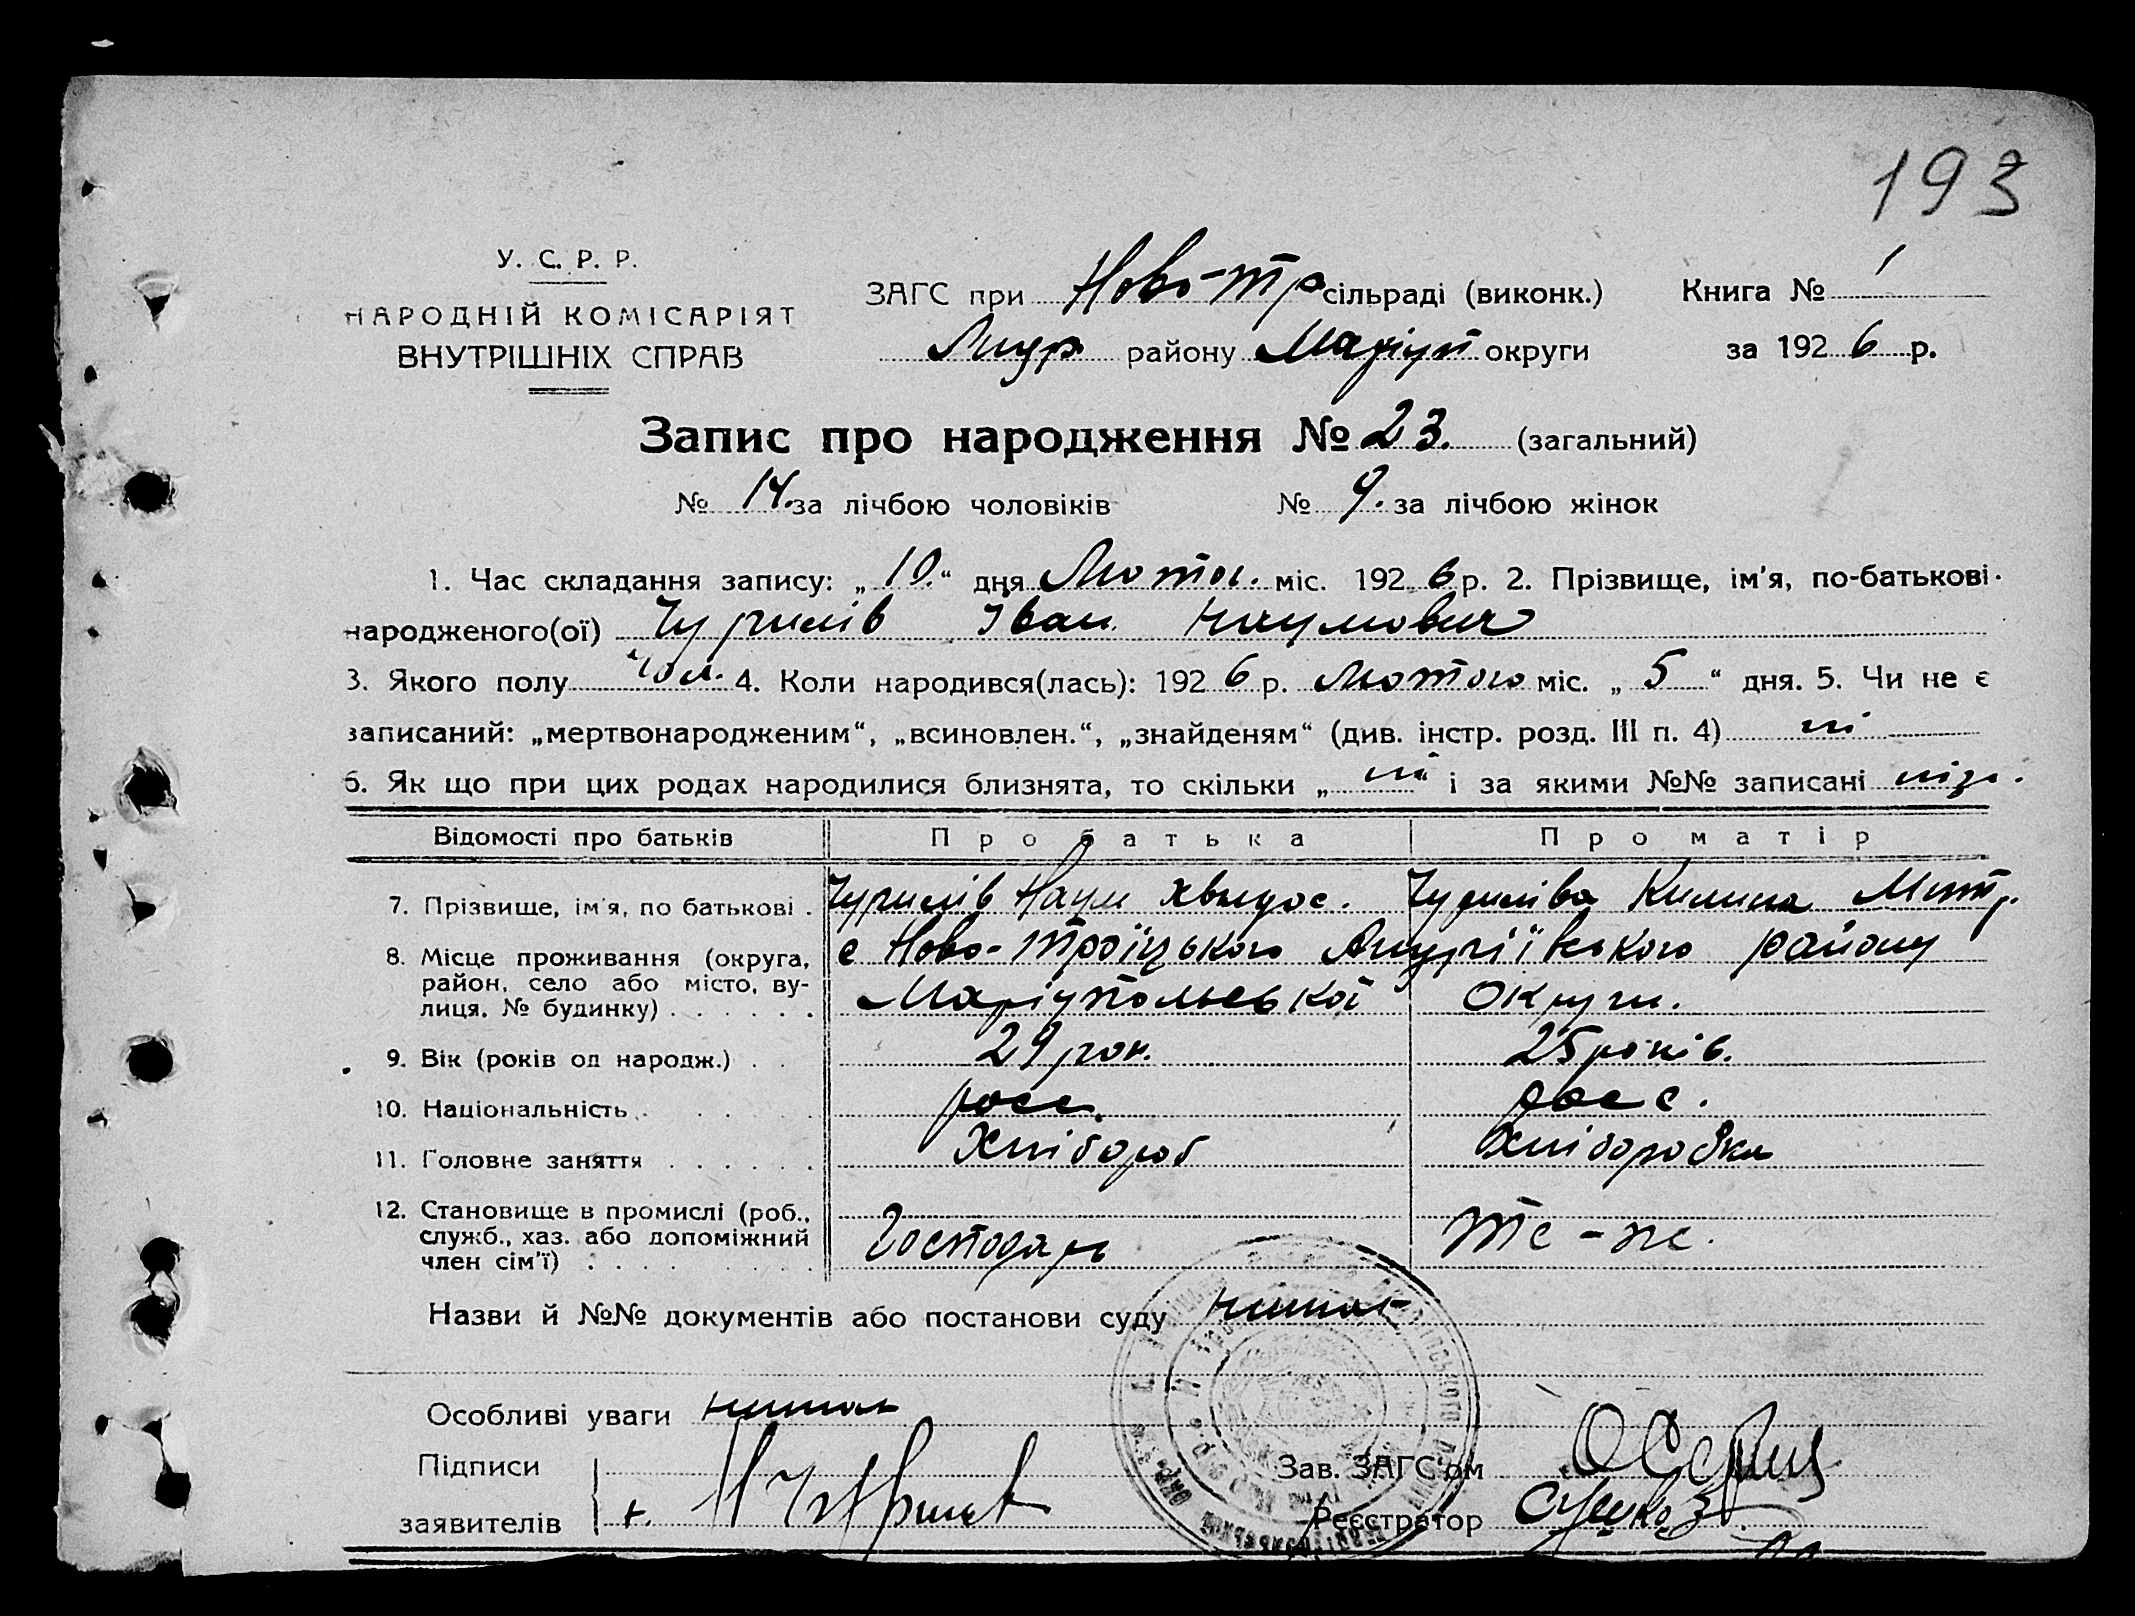 193
У. С. Р. Р.
НАРОДНІЙ КОМІСАРІЯТ
ВНУТРІШНІХ СПРАВ
ЗАГС при Ново-Тр сільраді (виконк.)
району Маріуп округи
Книга № 1
за 1926 р.
Запис про народження № 23. (загальний)
№ 14. за лічбою чоловіків № 9. за лічбою жінок
1. Час складання запису: „10.“ дня Лютог. міс. 1926 р. 2. Прізвище, ім'я, по-батькові
народженого(ої) Чурилів Іван Наумович
3. Якого полу чол. 4. Коли народився(лась): 1926 р. Лютого міс. „5“ дня. 5. Чи не є
записаний: „мертвонародженим“, „всиновлен.“, „знайденям“ (див. інстр. розд. III п. 4) ні
6. Як що при цих родах народилися близнята, то скільки „ні“ і за якими №№ записані
Відомості про батьків Про батька Про матір
7. Прізвище, ім'я, по батькові . Чурилів Наум Хведос. Чуриліва Килина Митр.
8. Місце проживання (округа, район, село або місто, вулиця, № будинку) . . . . . . с Ново-Троїцького Андріївського району
Маріупольської Округи.
9. Вік (років од народж.) . . 29 рок. 25 років.
10. Національність . . . . росс. росс.
11. Головне заняття . . . . . . Хлібороб Хліборобка
12. Становище в промислі (роб., служб., хаз. або допоміжний член сім'ї) . . . . Господарь те-же.
Назви й №№ документів або постанови суду немає
Особливі уваги немає
Підписи
заявителів
Зав. ЗАГС'ом
Реєстратор